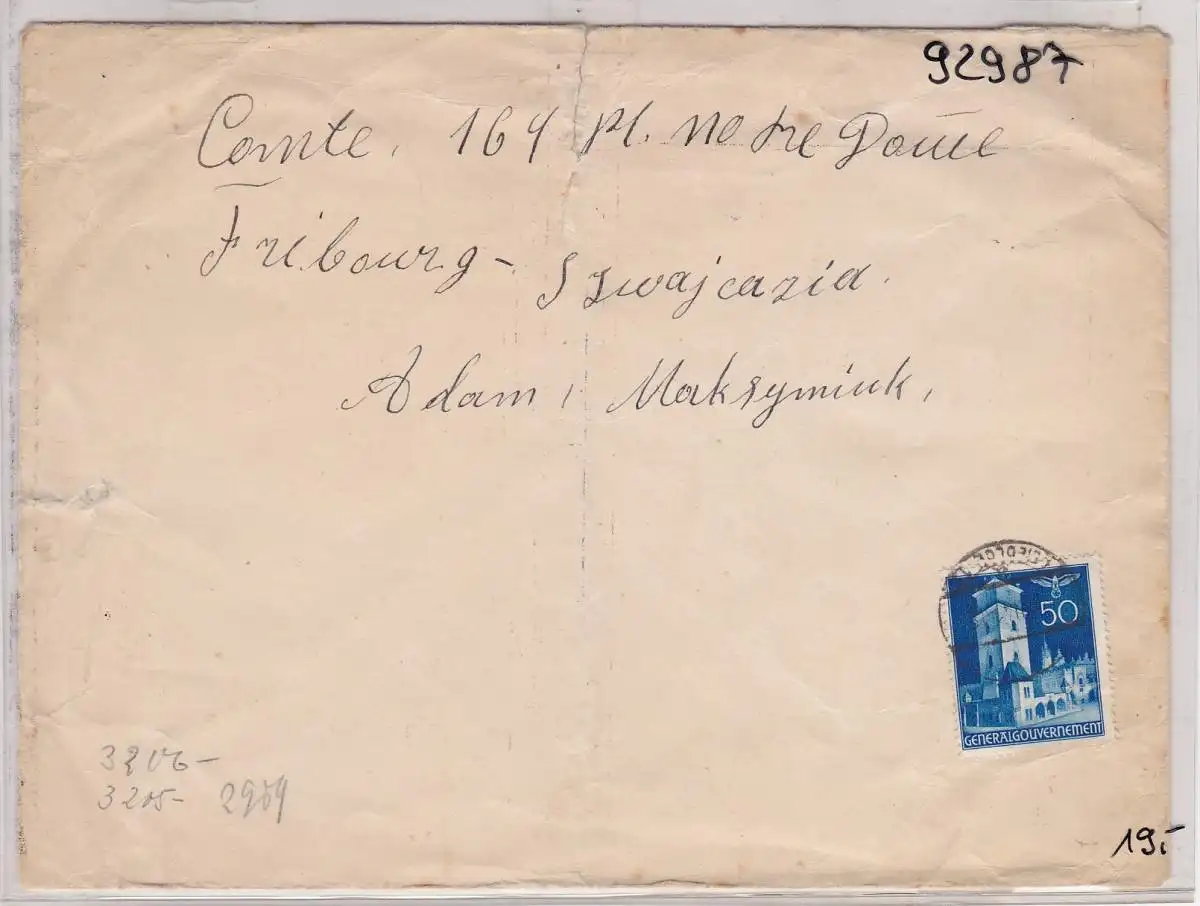 92987
Comte, 164 pl. Notre Dame
Fribourg - Szwajcaria.
Adam, Maksymiuk,
50
GENERALGOUVERNEMENT
3205- 2959
19,-